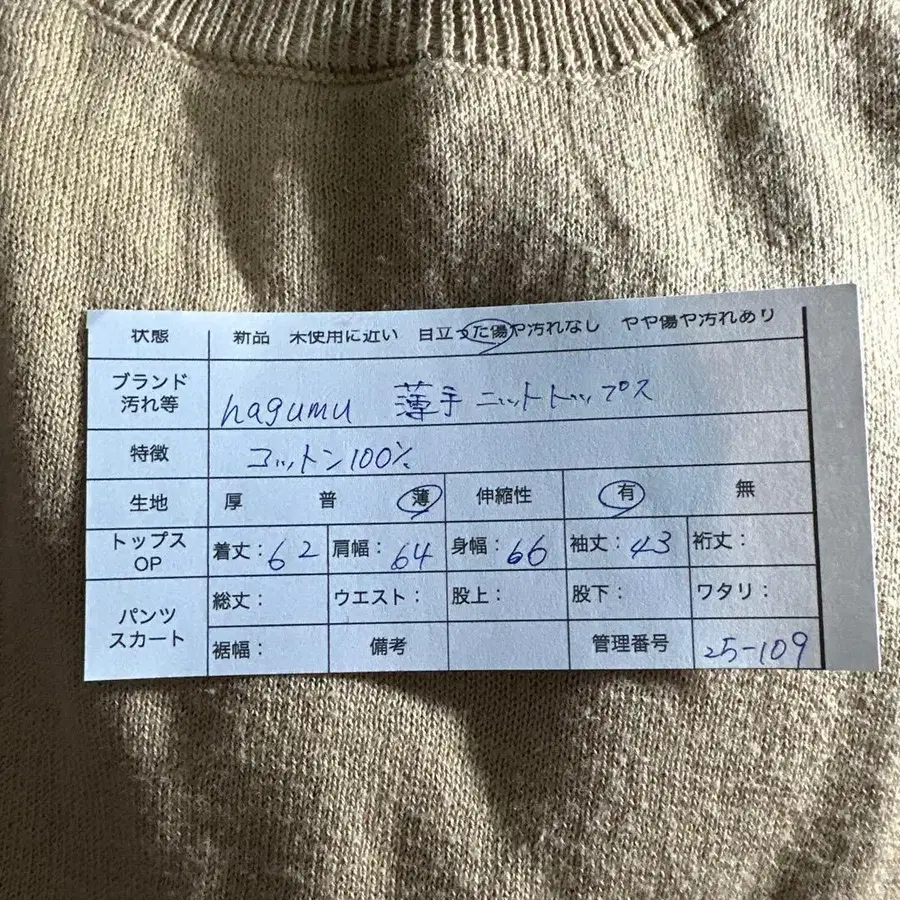 状態 新品 未使用に近い 目立った傷や汚れなし やや傷や汚れあり
ブランド 汚れ等 hagumu 薄手ニットトップス
特徴 コットン100%
生地 厚 普 薄 伸縮性 有 無
トップス OP 着丈:62 肩幅:64 身幅:66 袖丈:43 裄丈:
パンツ スカート 総丈: ウエスト: 股上: 股下: ワタリ:
裾幅: 備考 管理番号 25-109